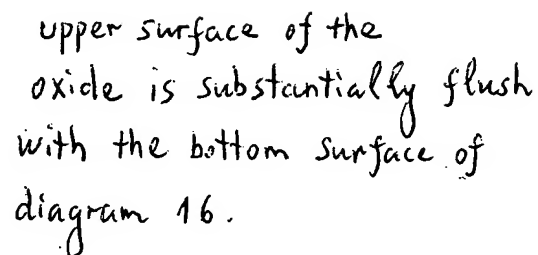 upper surface of the
oxide is substantially flush
with the bottom surface of
diagram 16.